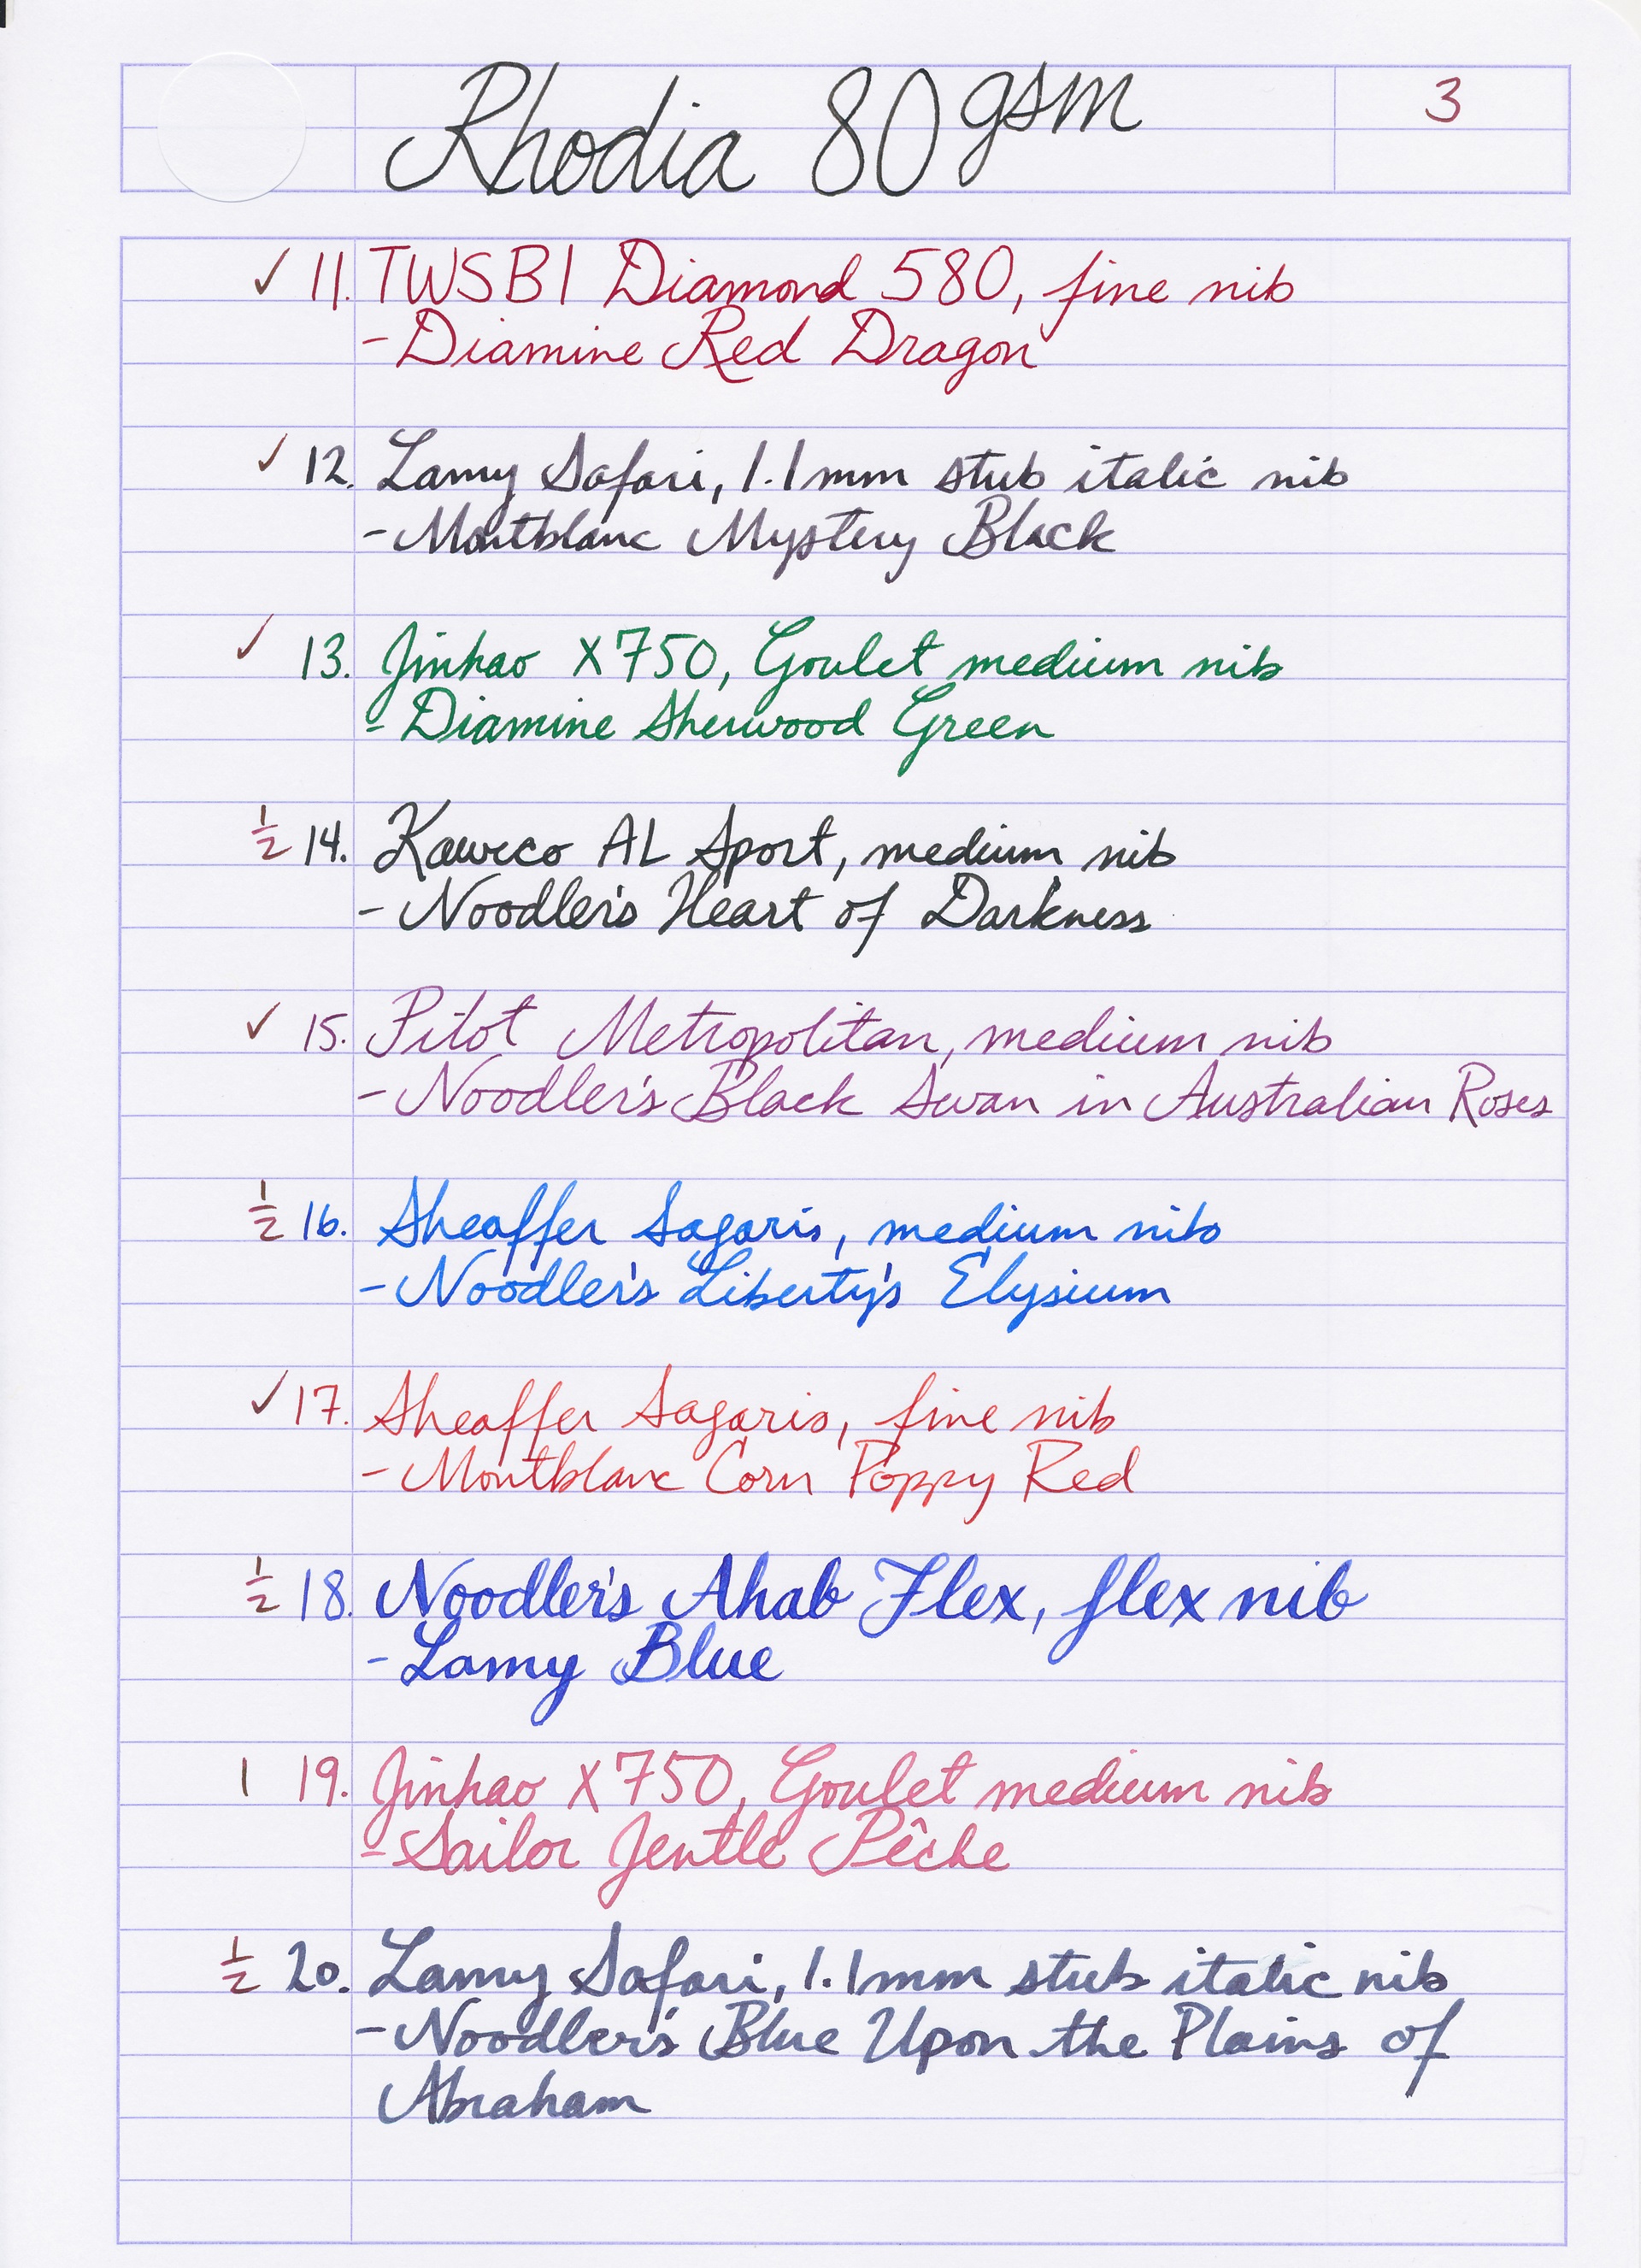 Rhodia 80 gsm 3
✓ 11. TWSBI Diamond 580, fine nib
- Diamine Red Dragon
✓ 12. Lamy Safari, 1.1mm stub italic nib
- Montblanc Mystery Black
✓ 13. Jinhao X750, Goulet medium nib
- Diamine Sherwood Green
1/2 14. Kaweco AL Sport, medium nib
- Noodler's Heart of Darkness
✓ 15. Pilot Metropolitan, medium nib
- Noodler's Black Swan in Australian Roses
1/2 16. Sheaffer Sagaris, medium nib
- Noodler's Liberty's Elysium
✓ 17. Sheaffer Sagaris, fine nib
- Montblanc Corn Poppy Red
1/2 18. Noodler's Ahab Flex, flex nib
- Lamy Blue
1 19. Jinhao X750, Goulet medium nib
- Sailor Jentle Pêche
1/2 20. Lamy Safari, 1.1mm stub italic nib
- Noodler's Blue Upon the Plains of
Abraham